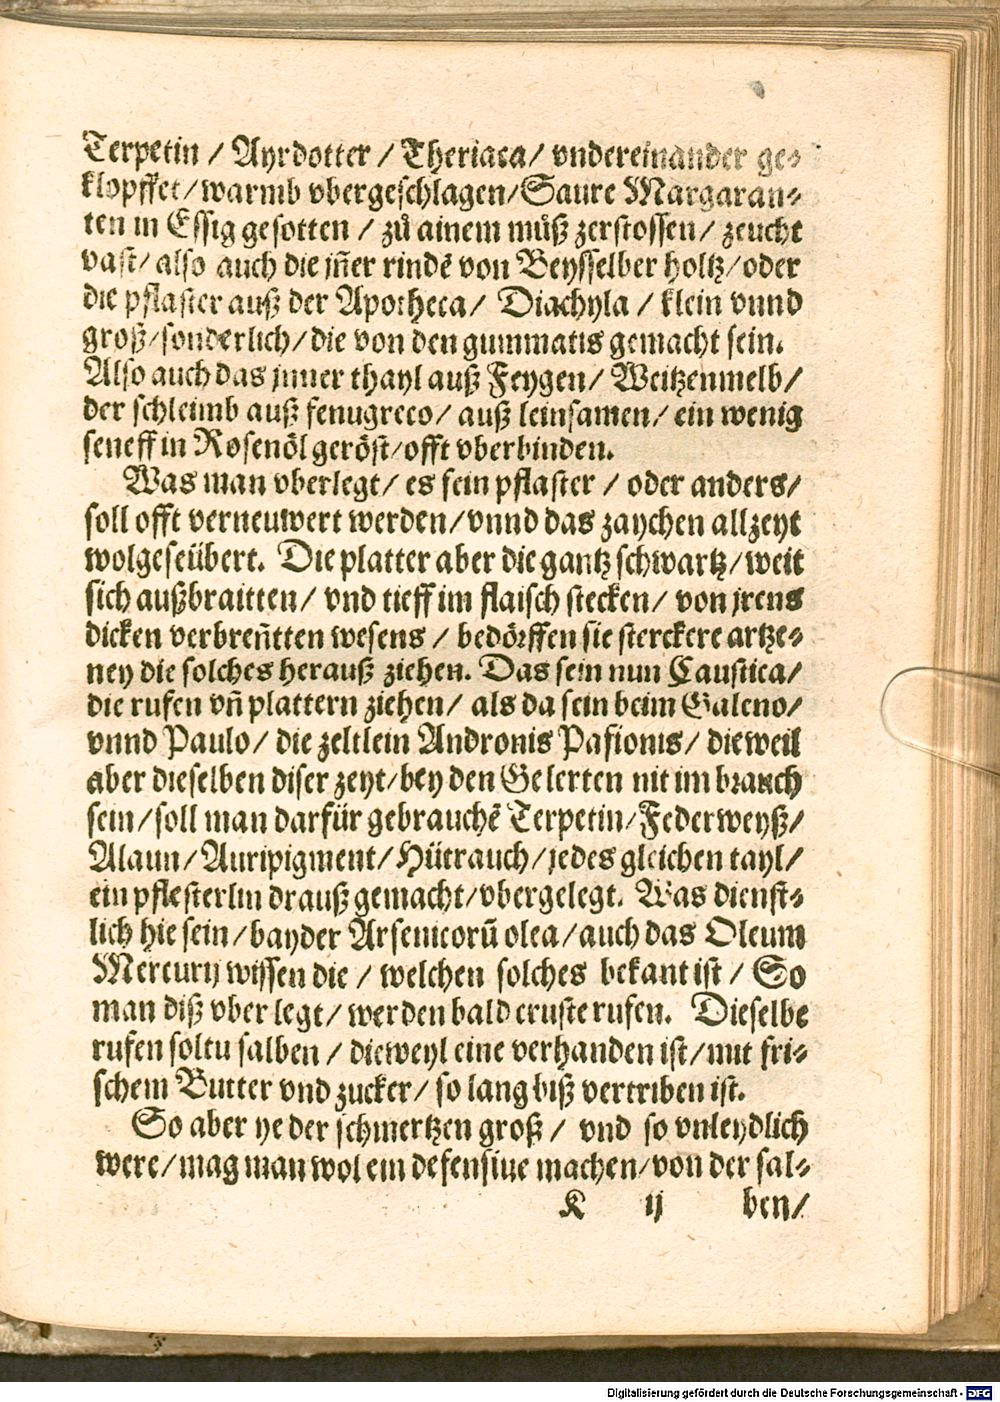 Terpetin / Ayrdotter / Theriaca/ vndereinander ge-
klopffet/warmb vbergeschlagen/Saure Margaran-
ten in Essig gesotten / zů ainem můß zerstossen/ zeucht
vast/ also auch die jñer rindē von Beysselber holtz/oder
die pflaster auß der Apotheca/ Diachyla / klein vnnd
groß/sonderlich/die von den gummatis gemacht sein.
Also auch das jnner thayl auß Feygen/ Weitzenmelb/
der schleimb auß fenugreco/ auß leinsamen/ ein wenig
seneff in Rosenöl geröst/offt vberbinden.
Was man vberlegt/ es sein pflaster / oder anders/
soll offt verneuwert werden/vnnd das zaychen allzeyt
wolgeseübert. Die platter aber die gantz schwartz/weit
sich außbraitten/ vnd tieff im flaisch stecken/ von jrens
dicken verbreñtten wesens / bedörffen sie sterckere artze-
ney die solches herauß ziehen. Das sein nun Caustica/
die rufen vñ plattern ziehen/ als da sein beim Galeno/
vnnd Paulo/ die zeltlein Andronis Pasionis/ dieweil
aber dieselben diser zeyt/bey den Gelerten nit im brauch
sein/soll man darfür gebrauchē Terpetin/Federweyß/
Alaun/Auripigment/Hütrauch/jedes gleichen tayl/
ein pflesterlin drauß gemacht/vbergelegt. Was dienst-
lich hie sein/bayder Arsenicorū olea/auch das Oleum
Mercurij wissen die / welchen solches bekant ist / So
man diß vber legt/ werden bald cruste rufen. Dieselbe
rufen soltu salben / dieweyl eine verhanden ist/mit fri-
schem Butter vnd zucker/ so lang biß vertriben ist.
So aber ye der schmertzen groß / vnd so vnleydlich
were/mag man wol ein defensiue machen/von der sal-
K ij ben/
Digitalisierung gefördert durch die Deutsche Forschungsgemeinschaft - DFG